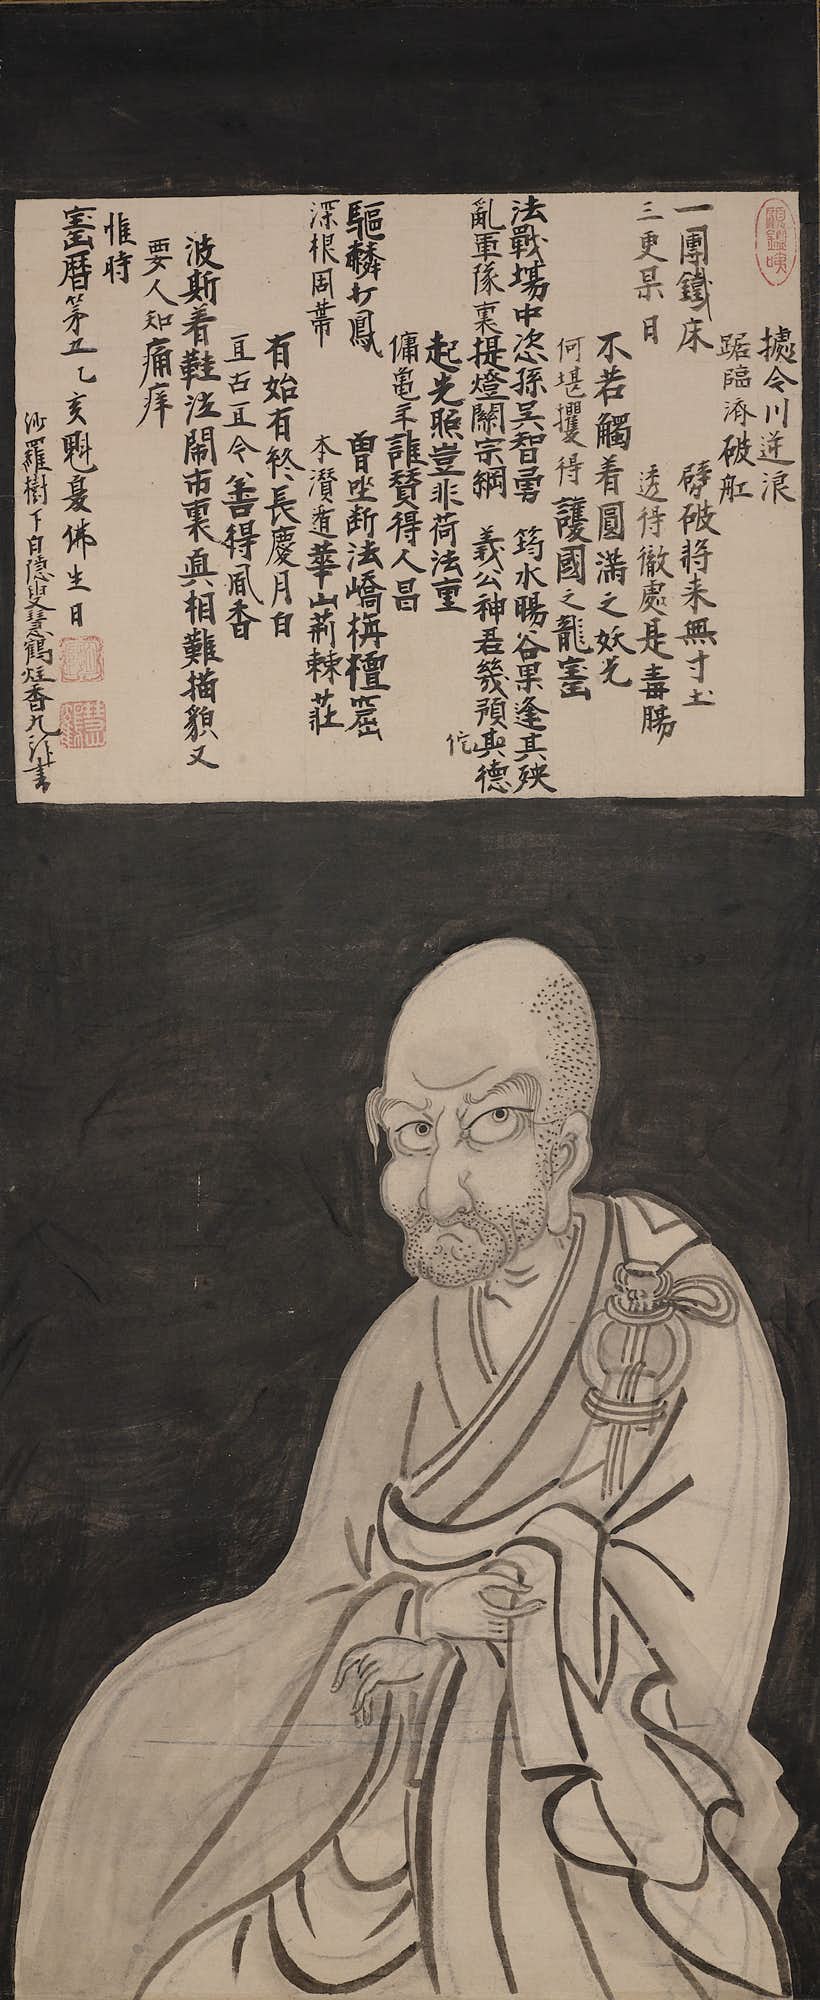 攄令川逆浪
踞臨濟破舡
一團鐵床 劈破將来無寸土
三更杲日 透得徹處是毒腸
不若觸着圓滿之妖光
何堪攫得護國之龍寳
法戰場中恣孫吴智勇 筠水暘谷果逢其殃
亂軍隊裏提燈關宗綱 義公神君幾預其德
佗
起光照豈非荷法重
傭亀年誰賛得人昌
驅麟打鳳 曽坐断法嶠栴檀窟
深根固蔕 本潜遁華山荊棘莊
有始有終、長慶月白
亘古亘今、善得風香
波斯着鞋法鬧市裏眞相難描貌又
要人知痛痒
惟時
寳暦第五乙亥魁夏佛生日
沙羅樹下白隠叟慧鶴炷香九拜書